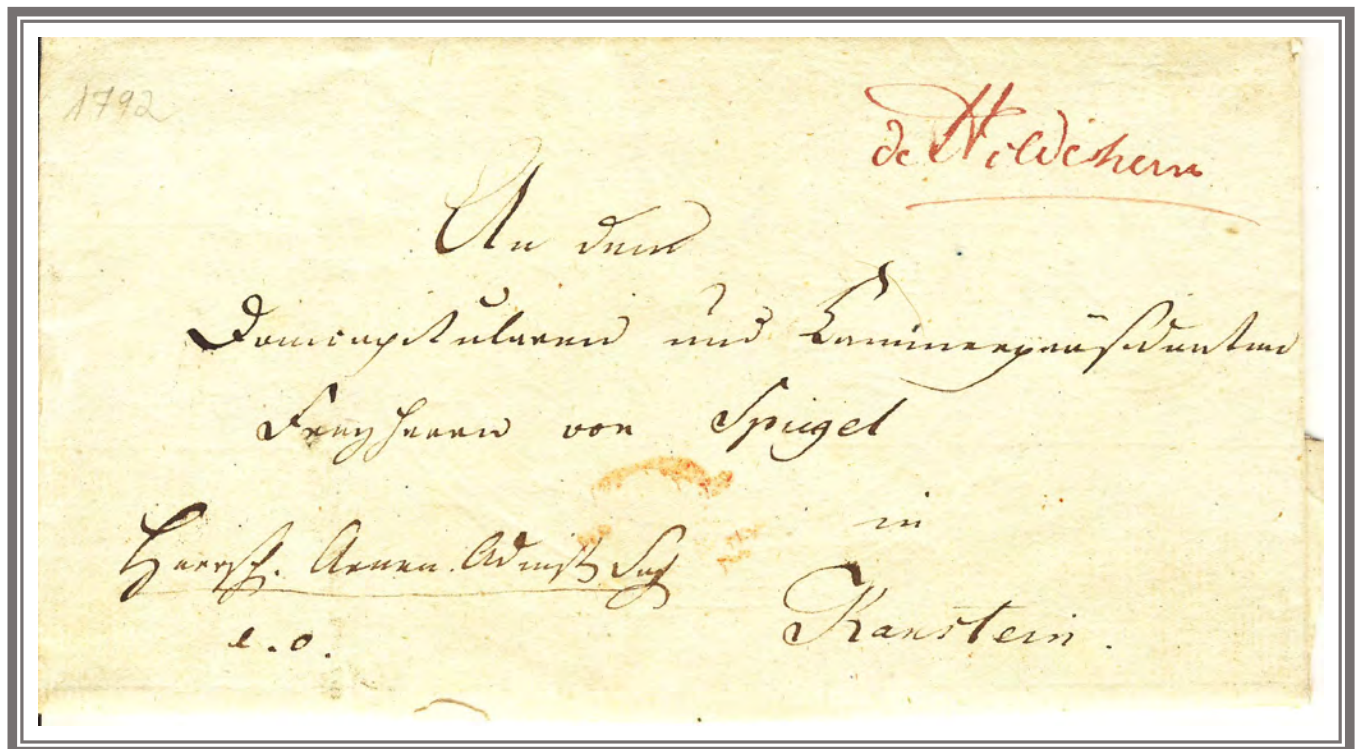 1792
de Hildesheim
An den
Domcapitularen und Cammerpräsidenten
Freyherrn von Spiegel
in
Herrsch. Armen. Admst. Sach
e. o.
Kanstein.